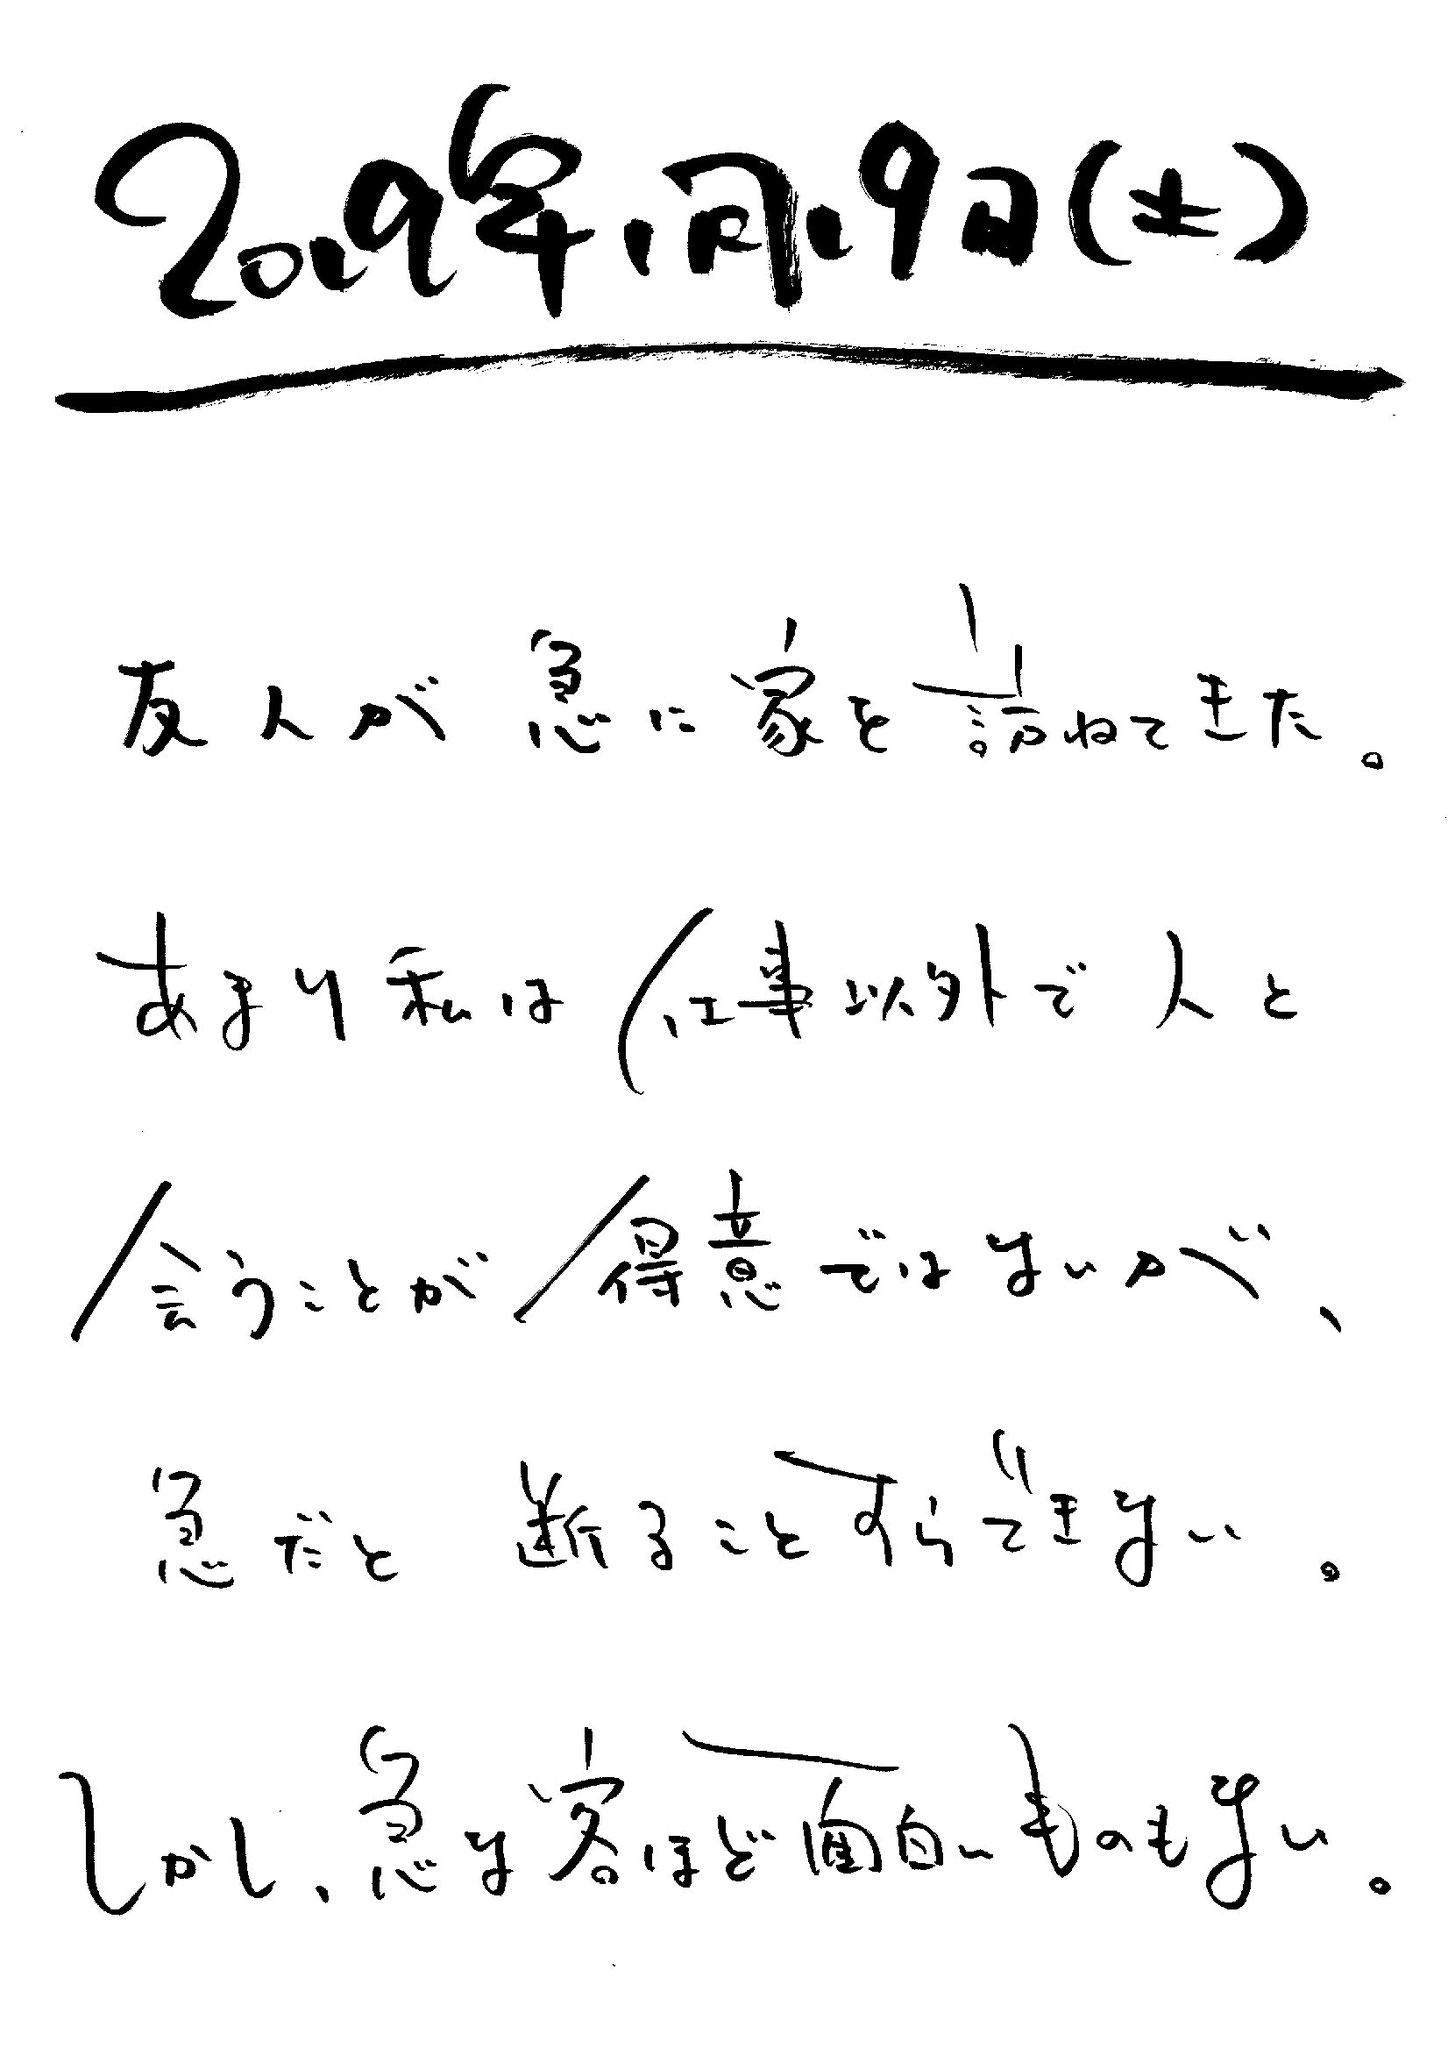 2019年1月19日(土)
友人が急に家を訪ねてきた。
あまり私は仕事以外で人と
会うことが得意ではないが、
急だと断ることすらできない。
しかし、急な客ほど面白いものもない。